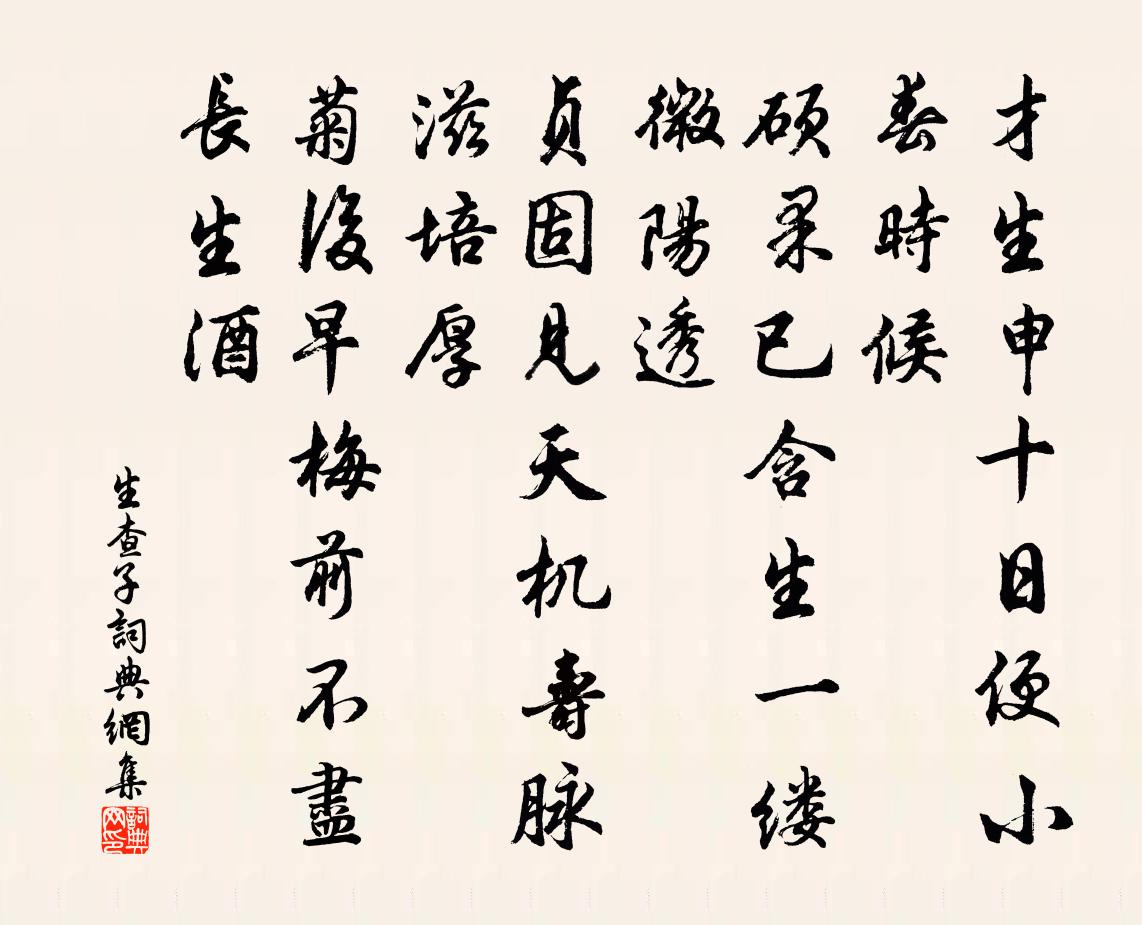 才生申十日便小
春時候
碩果已含生一缕
微陽透
貞固見天机壽脉
滋培厚
菊後早梅前不盡
長生酒
生查子詞典網集
詞典網印